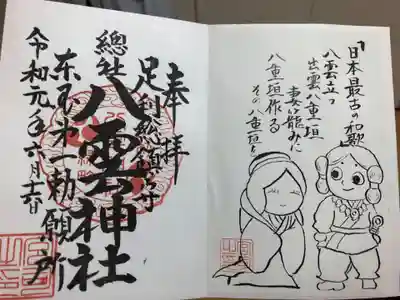 「日本最古の和歌」
八雲立つ
出雲八重垣
妻籠みに
八重垣作る
その八重垣を
奉拝
足利総鎮守
總社 八雲神社
東国第一勅願所
令和元年六月